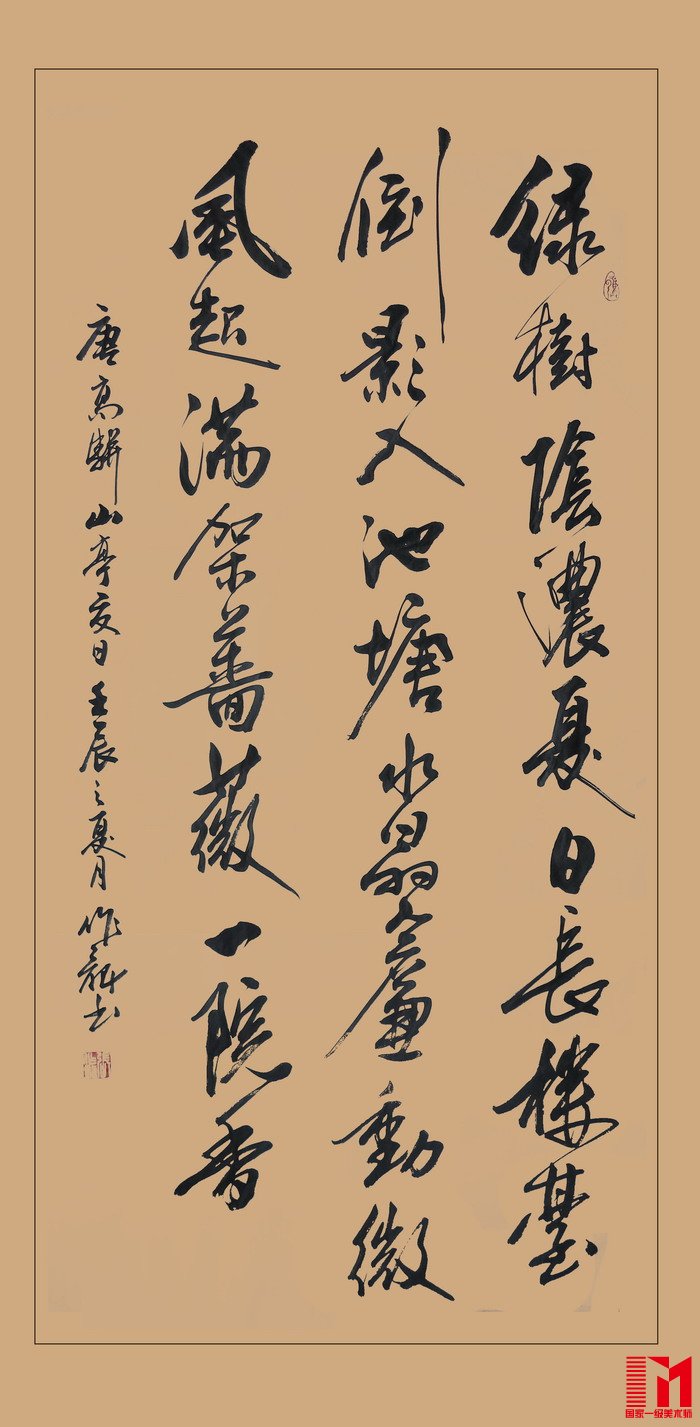 绿樹陰濃夏日長樓臺
倒影入池塘水晶簾動微
風起滿架薔薇一院香
唐高駢山亭夏日壬辰之夏月作书
国家一级美术师